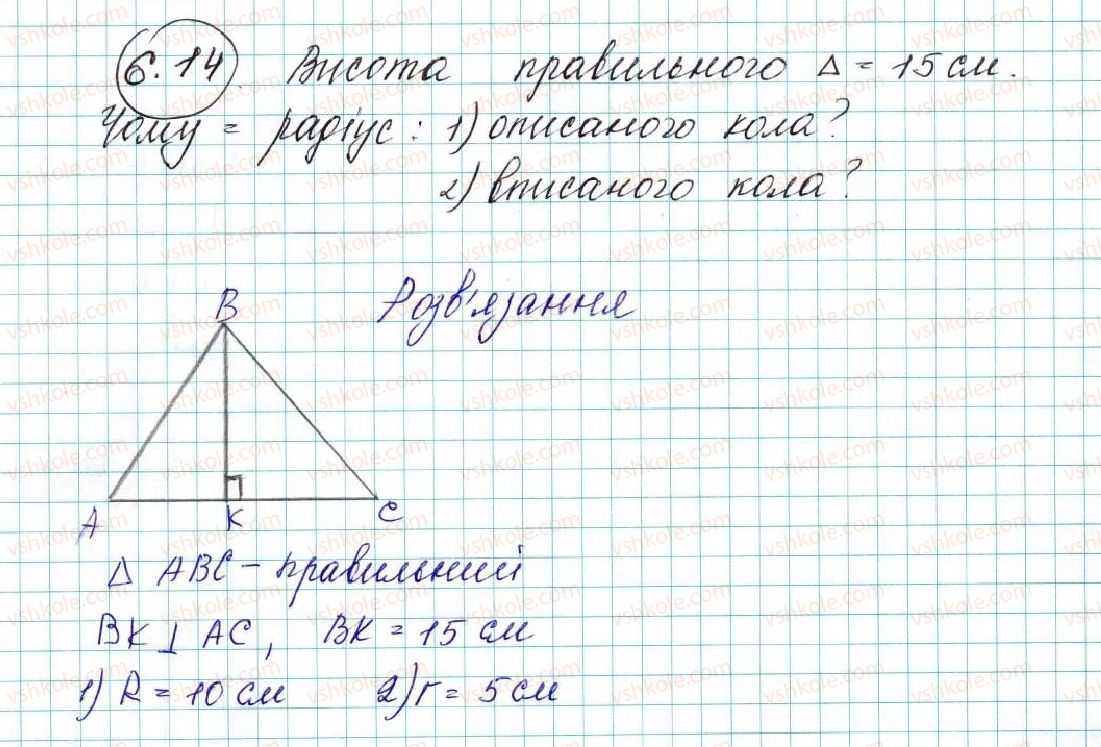 6.14 Висота правильного Δ = 15 см.
Чому = радіус: 1) описаного кола?
2) вписаного кола?
Розв'язання
B
A K C
Δ ABC – правильний
BK ⊥ AC, BK = 15 см
1) R = 10 см 2) r = 5 см
vshkole.com